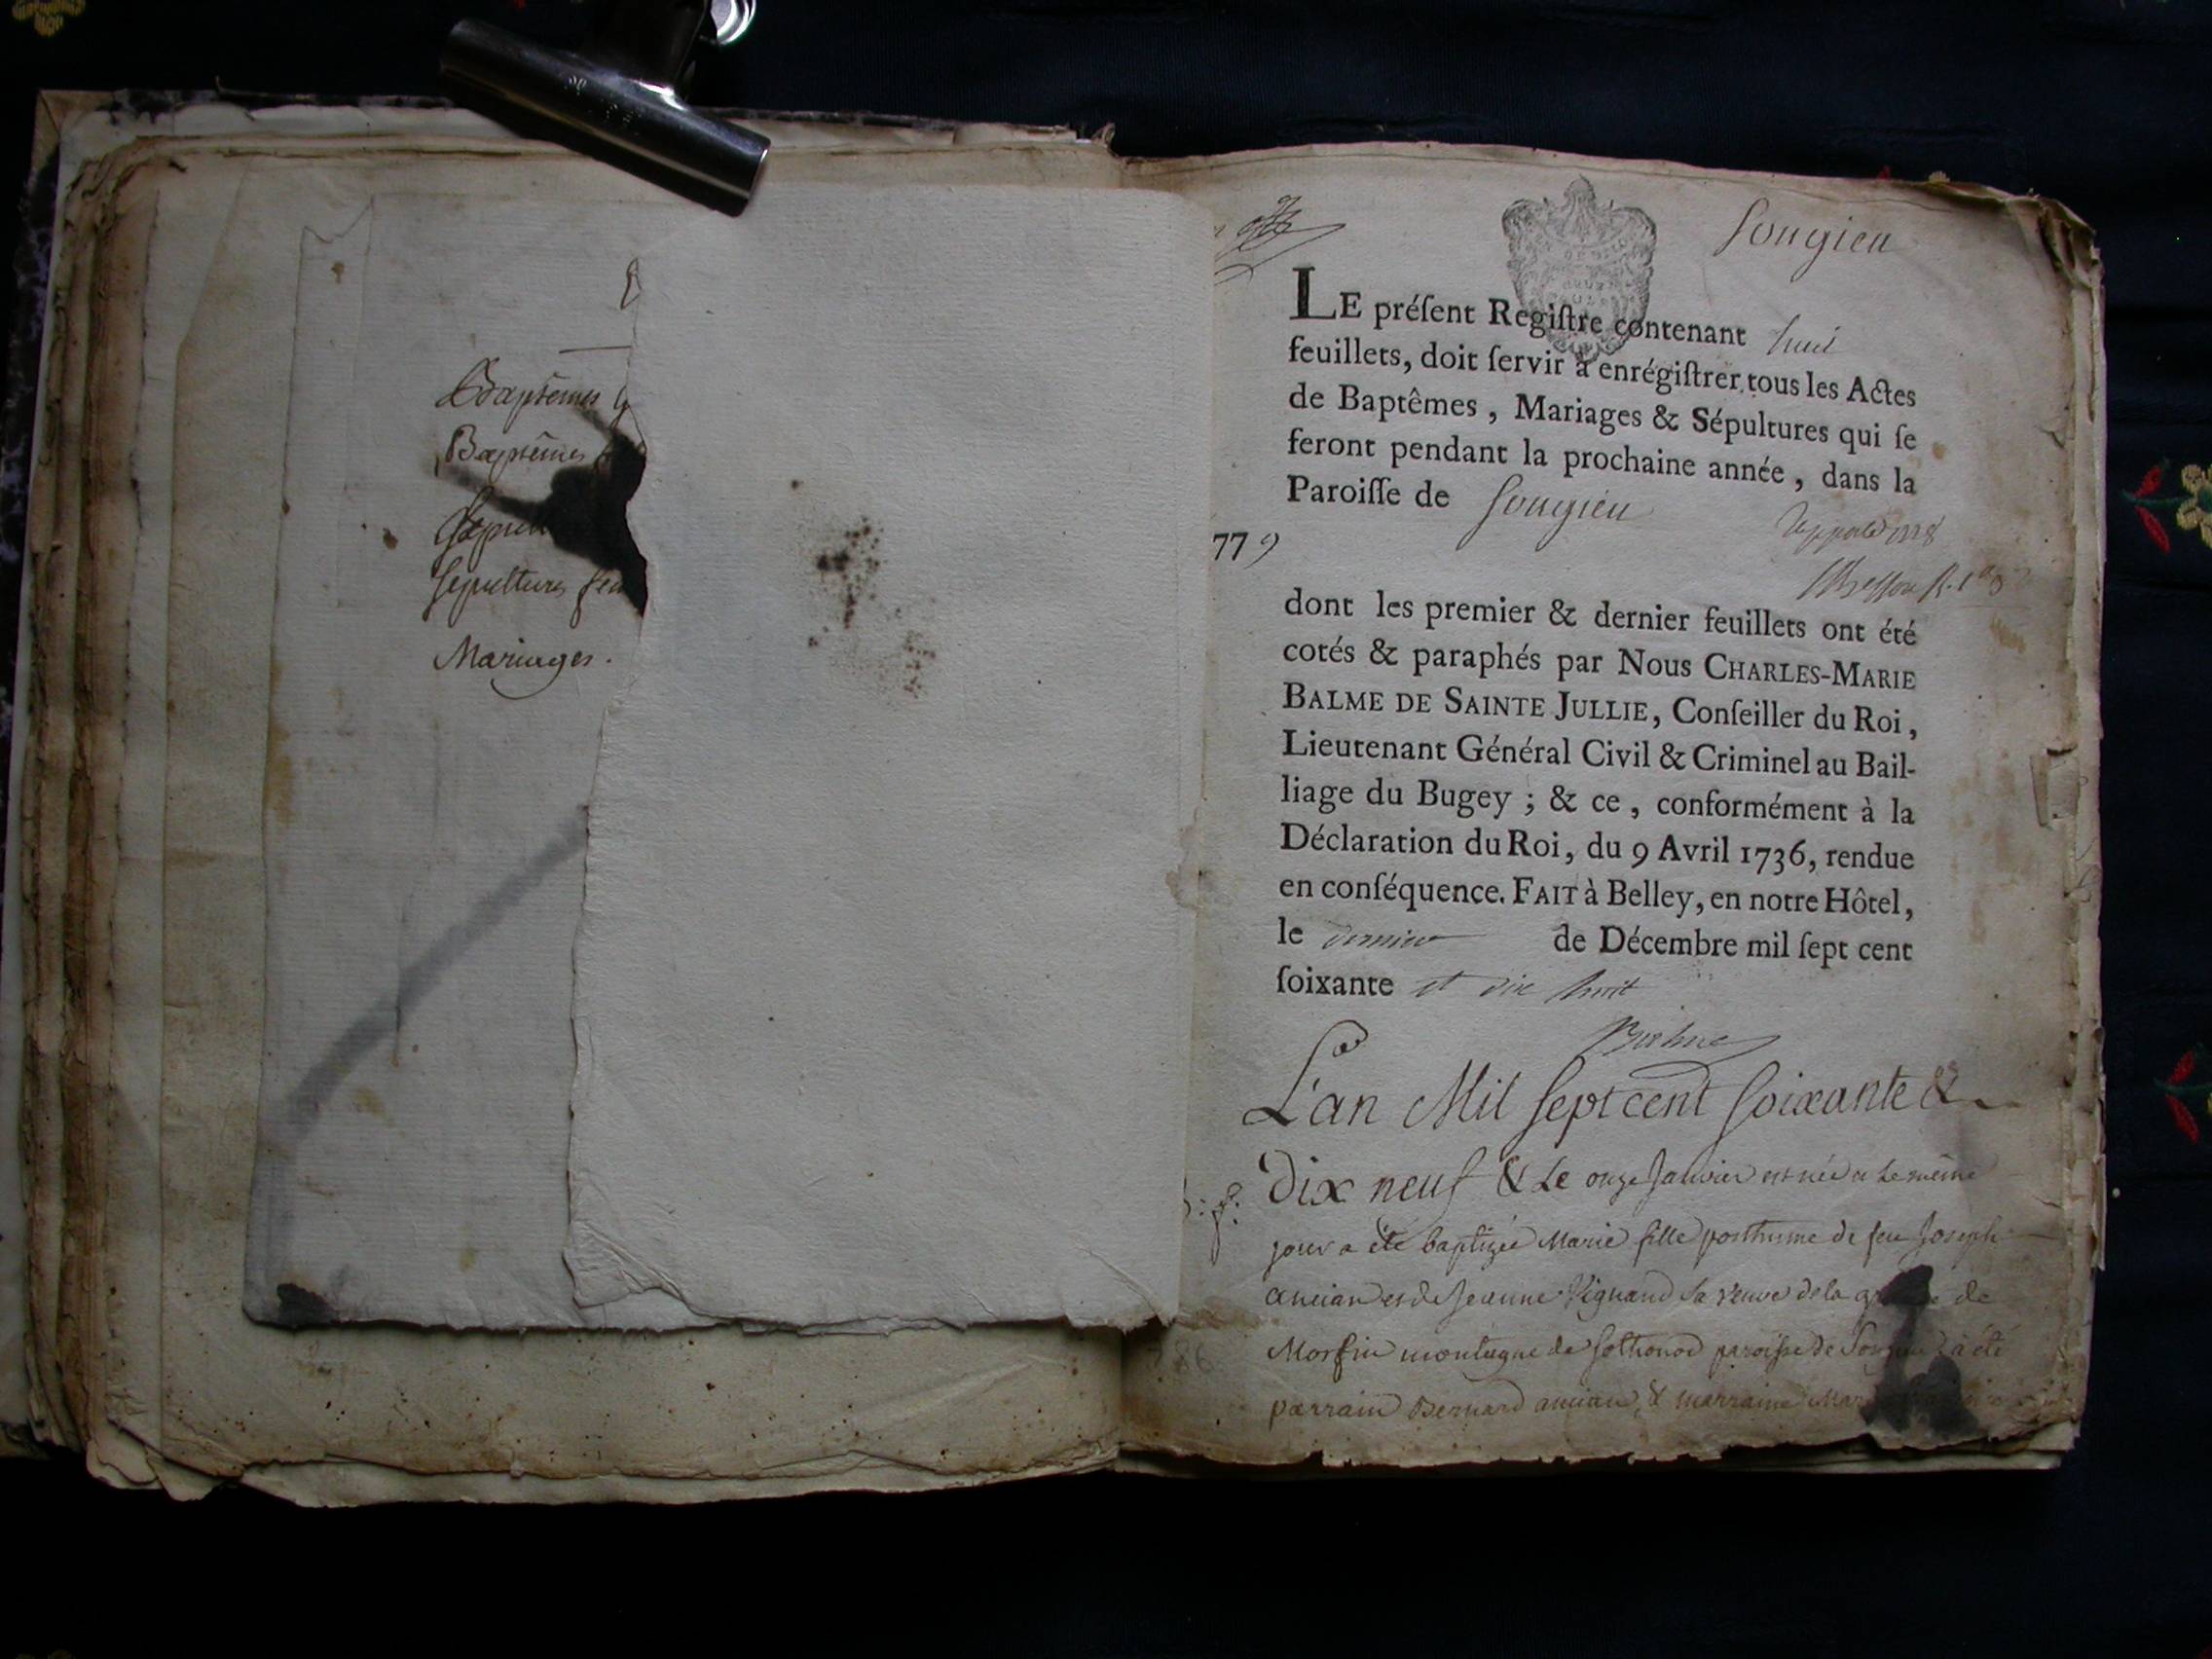 Baptêmes g
Baptêmes
Sepul
Sepultures fem
Mariages.
Songieu
LE préſent Regiſtre contenant huit
feuillets, doit ſervir à enrégiſtrer tous les Actes
de Baptêmes, Mariages & Sépultures qui ſe
feront pendant la prochaine année, dans la
Paroiſſe de Songieu
779
dont les premier & dernier feuillets ont été
cotés & paraphés par Nous CHARLES-MARIE
BALME DE SAINTE JULLIE, Conſeiller du Roi,
Lieutenant Général Civil & Criminel au Bail-
liage du Bugey ; & ce, conformément à la
Déclaration du Roi, du 9 Avril 1736, rendue
en conſéquence. FAIT à Belley, en notre Hôtel,
le dernier de Décembre mil ſept cent
ſoixante et dix huit
Balme
L'an Mil sept cent soixante &
Dix neuf & Le onze Janvier est née et le même
jour a été baptizée Marie fille posthume de feu Joseph
ancian et de Jeanne Vignand sa veuve de la de
Morfin montagne de Sothonod paroisse de Songieu à été
parrain Bernard ancian, & marraine